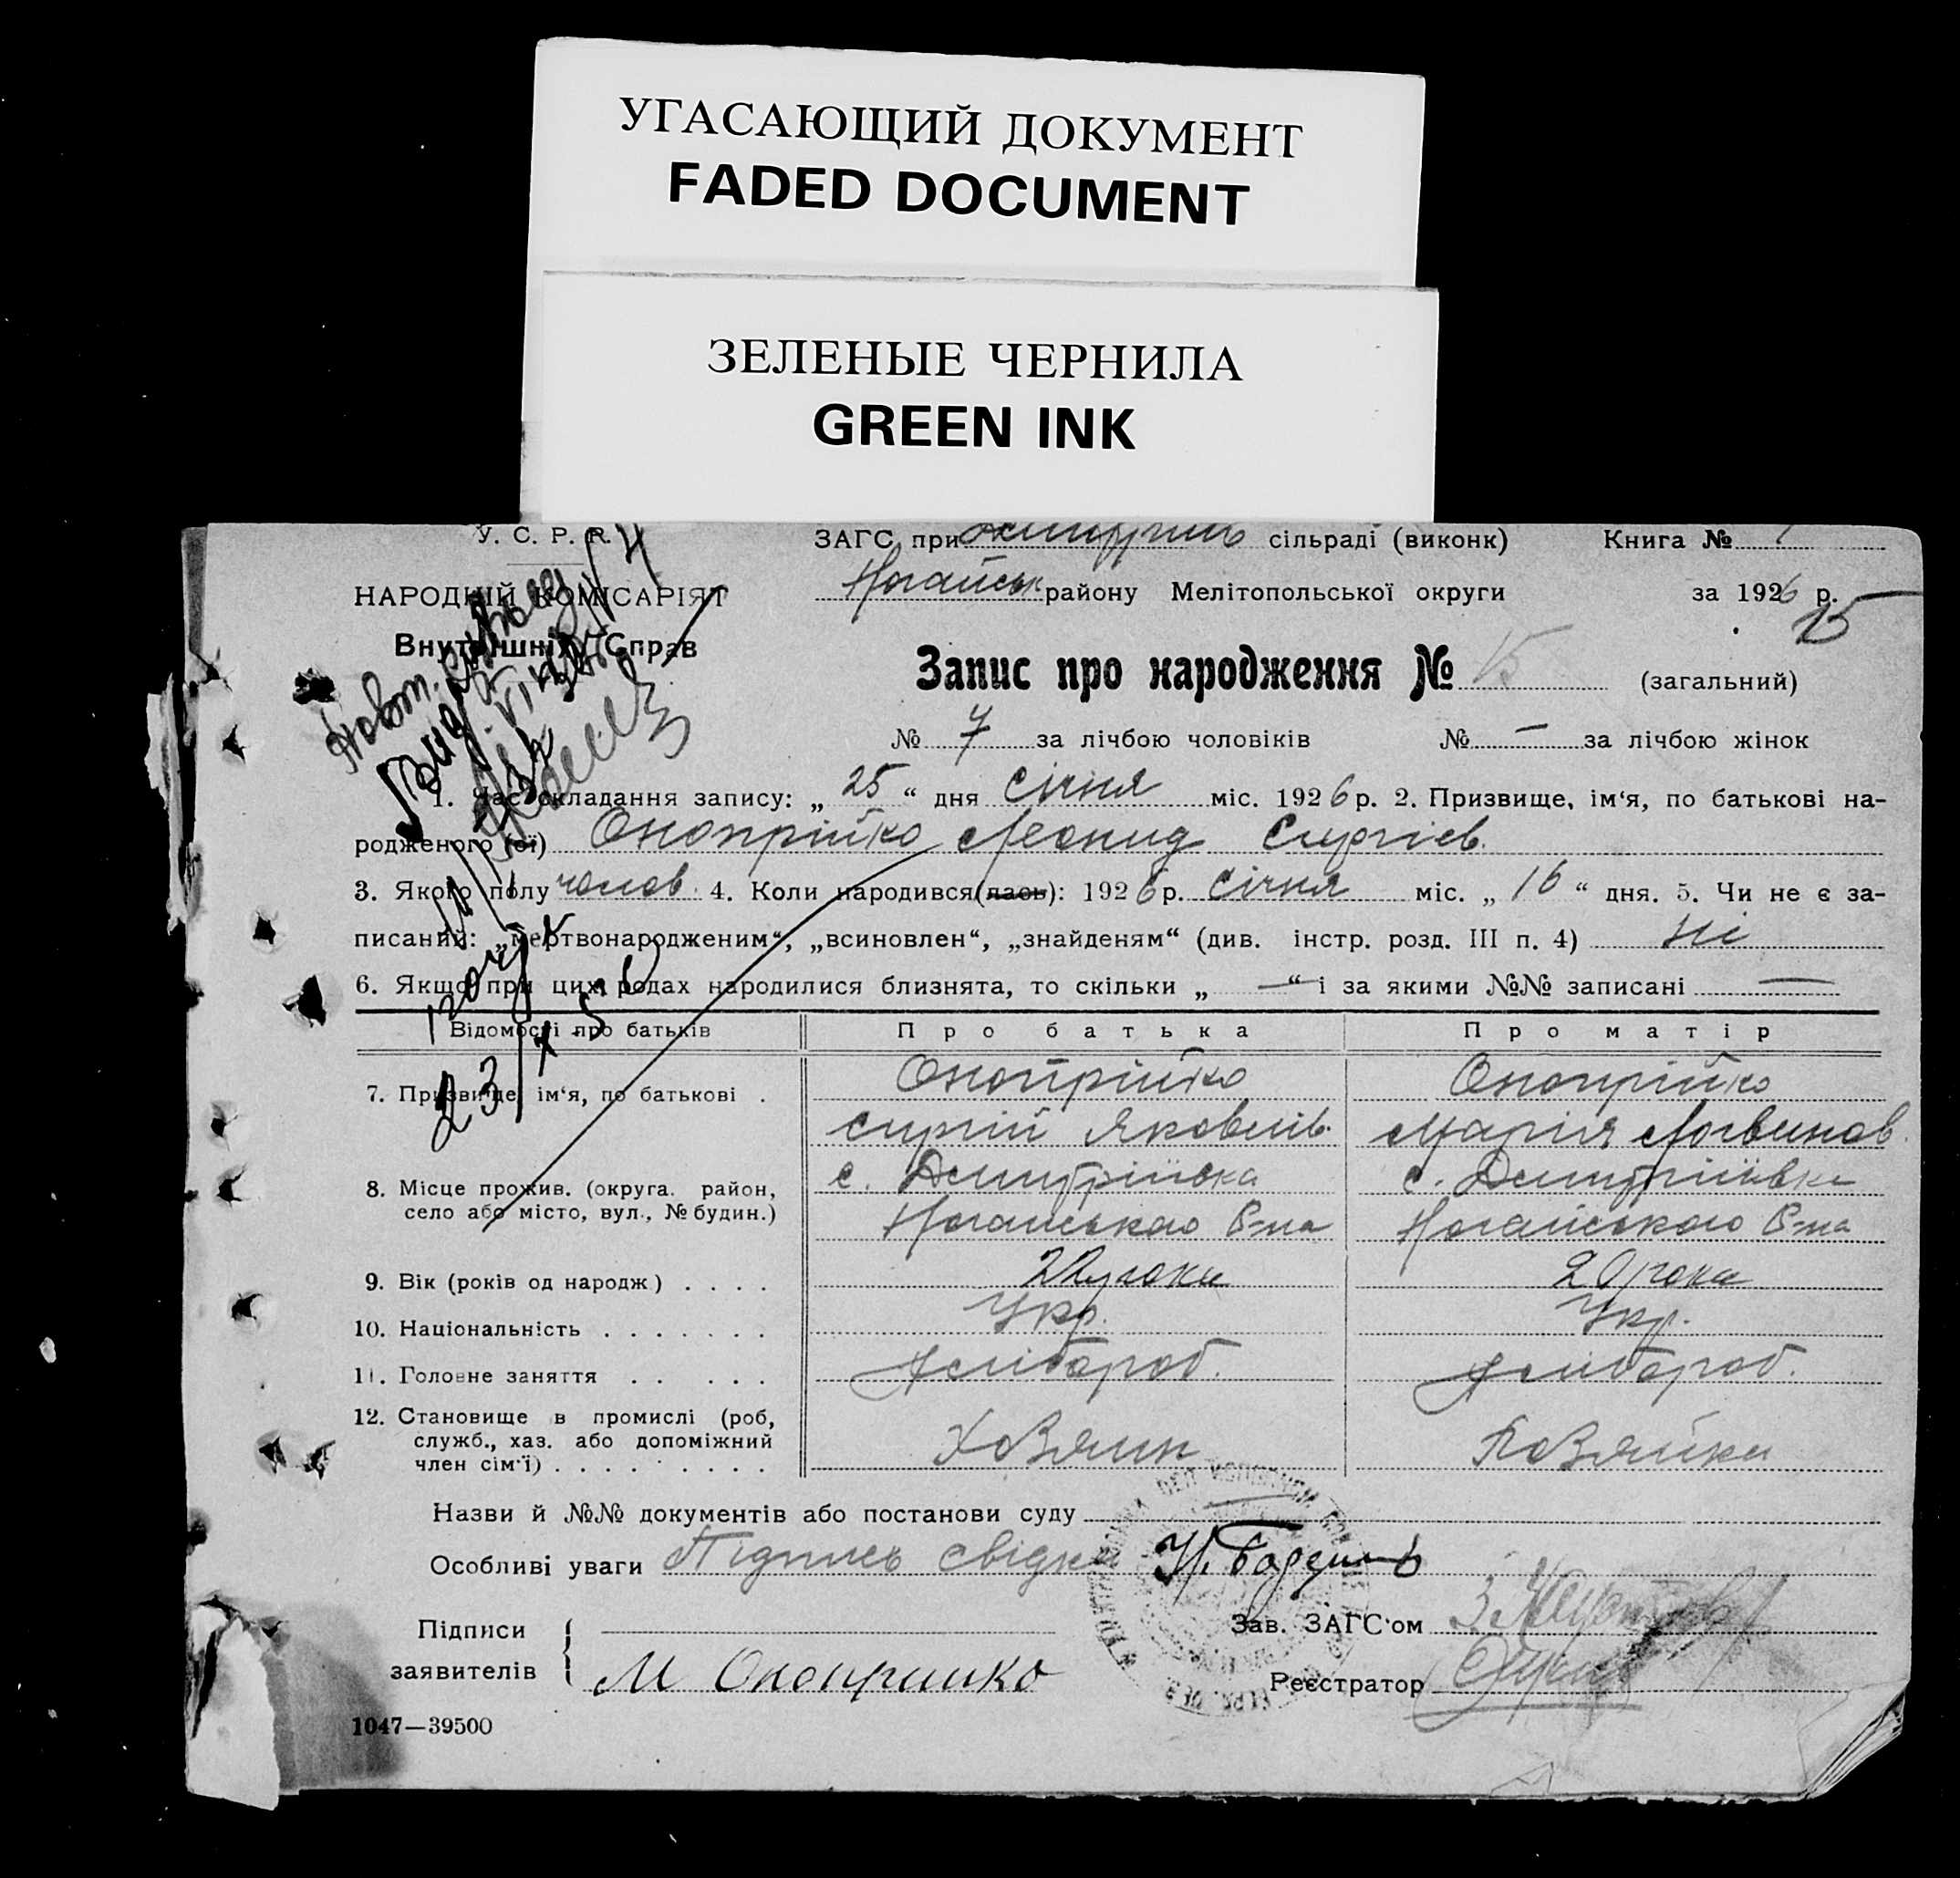 УГАСАЮЩИЙ ДОКУМЕНТ
FADED DOCUMENT
ЗЕЛЕНЫЕ ЧЕРНИЛА
GREEN INK
У. С. Р. Р.
НАРОДНІЙ КОМІСАРІЯТ
Внутрішніх Справ
ЗАГС при сільраді (виконк) Книга №
Ногайськ району Мелітопольської округи за 1926 р.
15
Запис про народження № 15 (загальний)
№ 7 за лічбою чоловіків № — за лічбою жінок
1. Час складання запису: „ 25 “ дня січня міс. 1926 р. 2. Призвище, ім‘я, по батькові на-
родженого (ої) Онопрійко Леонид Сергієв.
3. Якого полу чолов. 4. Коли народився(лась): 1926 р. січня міс. „ 16 “ дня. 5. Чи не є за-
писаний: „мертвонародженим“, „всиновлен“, „знайденям“ (див. інстр. розд. III п. 4) Ні
6. Якщо при цих родах народилися близнята, то скільки „ — “ і за якими №№ записані —
Відомості про батьків Про батька Про матір
7. Призвище, ім‘я, по батькові . Онопрійко Онопрійко
Сергій Яковлів. Марія Логвинов.
8. Місце прожив. (округа. район, с. Дмитріївка с. Дмитріївка
село або місто, вул., № будин.) Ногайського Р-на Ногайського Р-на
9. Вік (років од народж) . . . . 22 роки 20 роки
10. Національність . . . . . . . Укр. Укр.
11. Головне заняття . . . . . Хлібороб. Хлібороб.
12. Становище в промислі (роб,
служб., хаз. або допоміжний Хозяин Хозяйка
член сім‘ї) . . . . . . . . .
Назви й №№ документів або постанови суду
Особливі уваги Підпись свідка
Підписи
Зав. ЗАГС‘ом
заявителів М Оноприйко Реєстратор
1047—39500
23/X 5